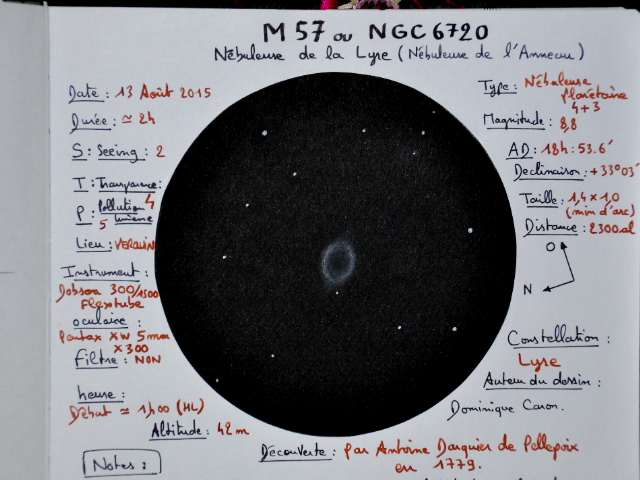 M 57 ou NGC 6720
Nébuleuse de la Lyre (Nébuleuse de l'Anneau)
Date : 13 Août 2015
Durée : ≃ 2h
S : Seeing : 2
T : Transparence : 4
P : Pollution lumière 5
Lieu :
Instrument :
Dobson 300/1500
Flextube
oculaire :
Pentax XW 5mm
x 300
filtre : NON
heure :
Début ≃ 1h00 (HL)
Altitude : 42 m
Notes :
Type : Nébuleuse
planétaire
4+3
Magnitude : 8,8
AD : 18h : 53.6'
Declinaison : +33°03'
Taille : 1,4 x 1,0
(min d'arc)
Distance : 2300 al
O
N
Constellation :
Lyre
Auteur du dessin :
Dominique Caron.
Découverte : par Antoine Darquier de Pellepoix
en 1779.